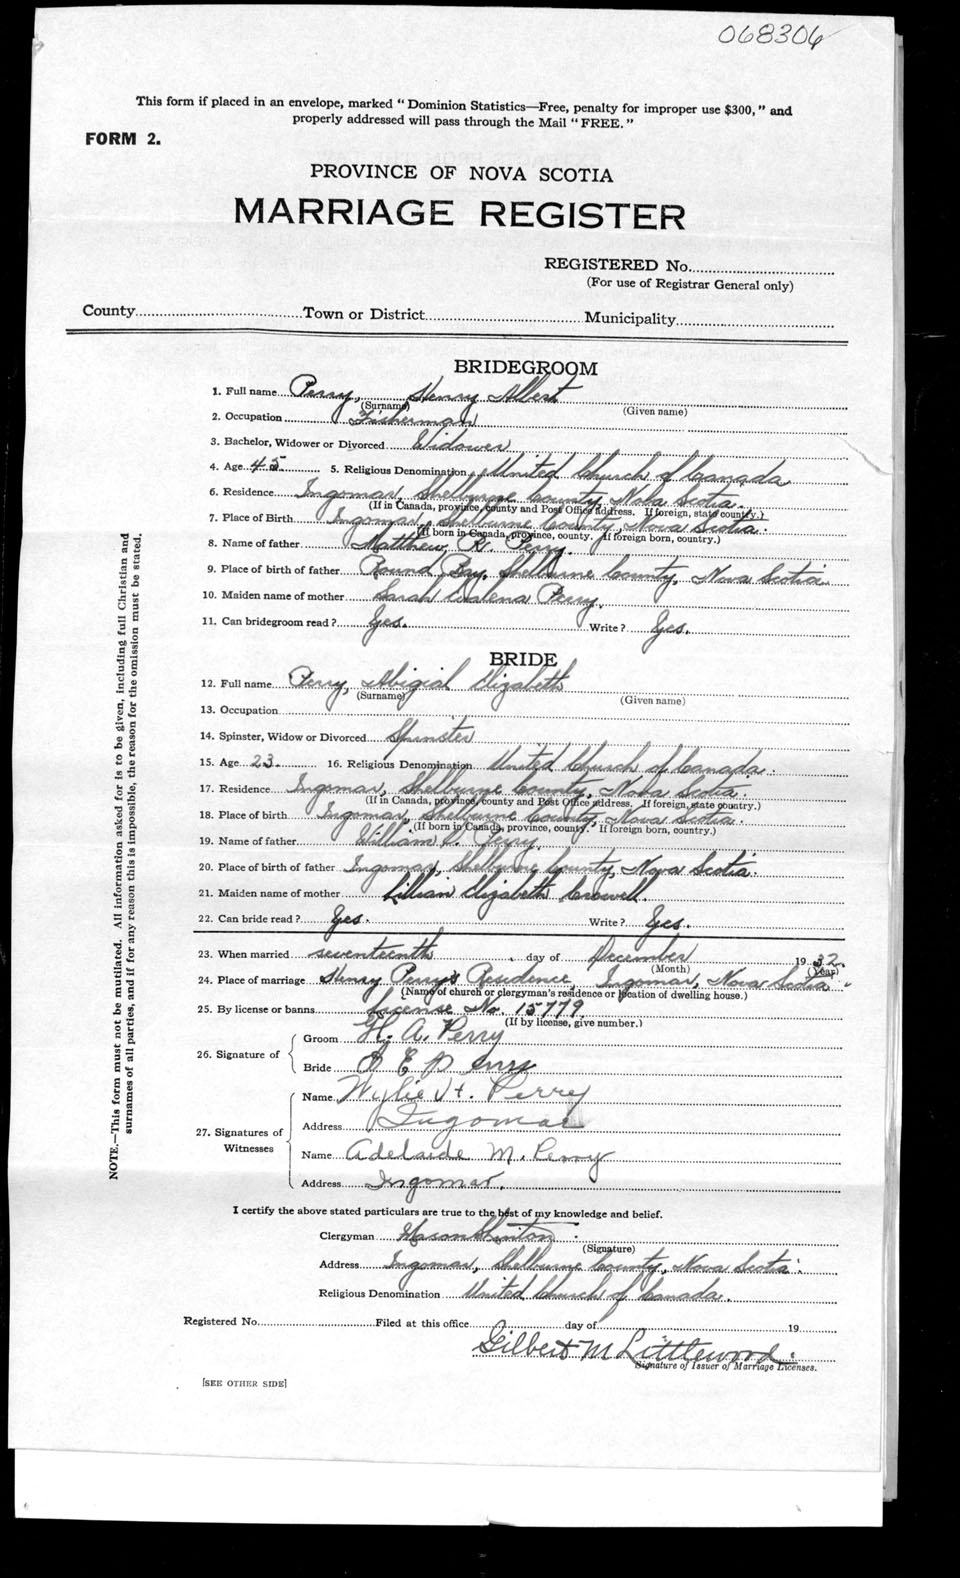 068306
This form if placed in an envelope, marked “ Dominion Statistics—Free, penalty for improper use $300, ” and
properly addressed will pass through the Mail “ FREE. ”
FORM 2.
PROVINCE OF NOVA SCOTIA
MARRIAGE REGISTER
REGISTERED No.
(For use of Registrar General only)
County Town or District Municipality
BRIDEGROOM
1. Full name Perry, Henry Albert
(Surname) (Given name)
2. Occupation Fisherman
3. Bachelor, Widower or Divorced Widower
4. Age 45 5. Religious Denomination United Church of Canada
6. Residence Ingomar, Shelburne County, Nova Scotia.
(If in Canada, province, county and Post Office address. If foreign, state country.)
7. Place of Birth Ingomar, Shelburne County, Nova Scotia.
(If born in Canada, province, county. If foreign born, country.)
8. Name of father Matthew, K. Perry.
9. Place of birth of father Round Bay, Shelburne County, Nova Scotia
10. Maiden name of mother Sarah Perry.
11. Can bridegroom read ? Yes. Write ? Yes.
BRIDE
12. Full name Perry, Abigial Elizabeth
(Surname) (Given name)
13. Occupation
14. Spinster, Widow or Divorced Spinster
15. Age 23 16. Religious Denomination United Church of Canada.
17. Residence Ingomar, Shelburne County, Nova Scotia.
(If in Canada, province, county and Post Office address. If foreign, state country.)
18. Place of birth Ingomar, Shelburne County, Nova Scotia.
(If born in Canada, province, county. If foreign born, country.)
19. Name of father William Perry.
20. Place of birth of father Ingomar, Shelburne County, Nova Scotia.
21. Maiden name of mother Lillian Elizabeth Crowell.
22. Can bride read ? Yes. Write ? Yes.
23. When married seventeenth day of December 19 32
(Month) (Year)
24. Place of marriage Henry Perry's Residence, Ingomar, Nova Scotia
(Name of church or clergyman's residence or location of dwelling house.)
25. By license or banns License No. 15779
(If by license, give number.)
26. Signature of
Groom H. A. Perry
Bride A E P
27. Signatures of Witnesses
Name Wylie H. Perry
Address Ingomar
Name Adelaide M. Perry
Address Ingomar.
I certify the above stated particulars are true to the best of my knowledge and belief.
Clergyman Mason
(Signature)
Address Ingomar, Shelburne County, Nova Scotia.
Religious Denomination United Church of Canada.
Registered No. Filed at this office day of 19
Gilbert M Littlewood.
Signature of Issuer of Marriage Licenses.
[SEE OTHER SIDE]
NOTE.—This form must not be mutilated. All information asked for is to be given, including full Christian and
surnames of all parties, and if for any reason this is impossible, the reason for the omission must be stated.